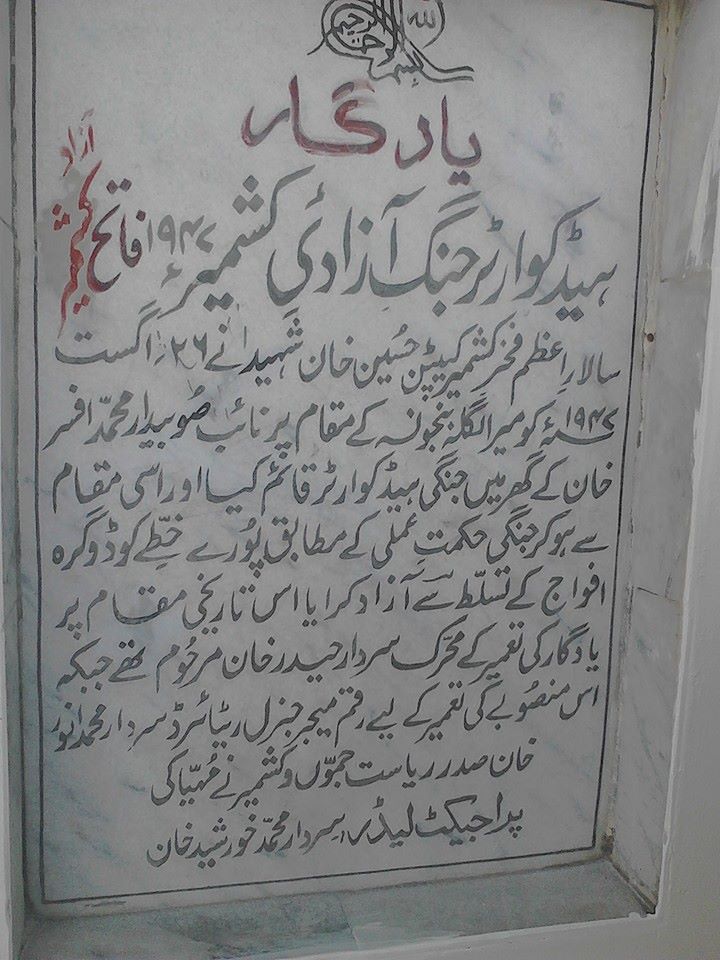 بسم اللہ الرحمن الرحیم
یادگار
ہیڈکوارٹر جنگِ آزادیٔ کشمیر ۱۹۴۷ء فاتح آزاد کشمیر
سالارِ اعظم فخرِ کشمیر کیپٹن حُسین خان شہید نے ۲۶؍اگست
۱۹۴۷ء کو میرالگلہ بنجونسہ کے مقام پر نائب صُوبیدار محمّد افسر
خان کے گھر میں جنگی ہیڈکوارٹر قائم کیا اور اسی مقام
سے ہو کر جنگی حکمتِ عملی کے مطابق پُورے خطّے کو ڈوگرہ
افواج کے تسلّط سے آزاد کرایا اس تاریخی مقام پر
یادگار کی تعمیر کے محرّک سردار حیدر خان مرحُوم تھے جبکہ
اس منصُوبے کی تعمیر کے لیے رقم میجر جنرل ریٹائرڈ سردار محمد انور
خان صدر ریاست جمّوں و کشمیر نے مُہیّا کی
پراجیکٹ لیڈر سردار محمّد خورشید خان